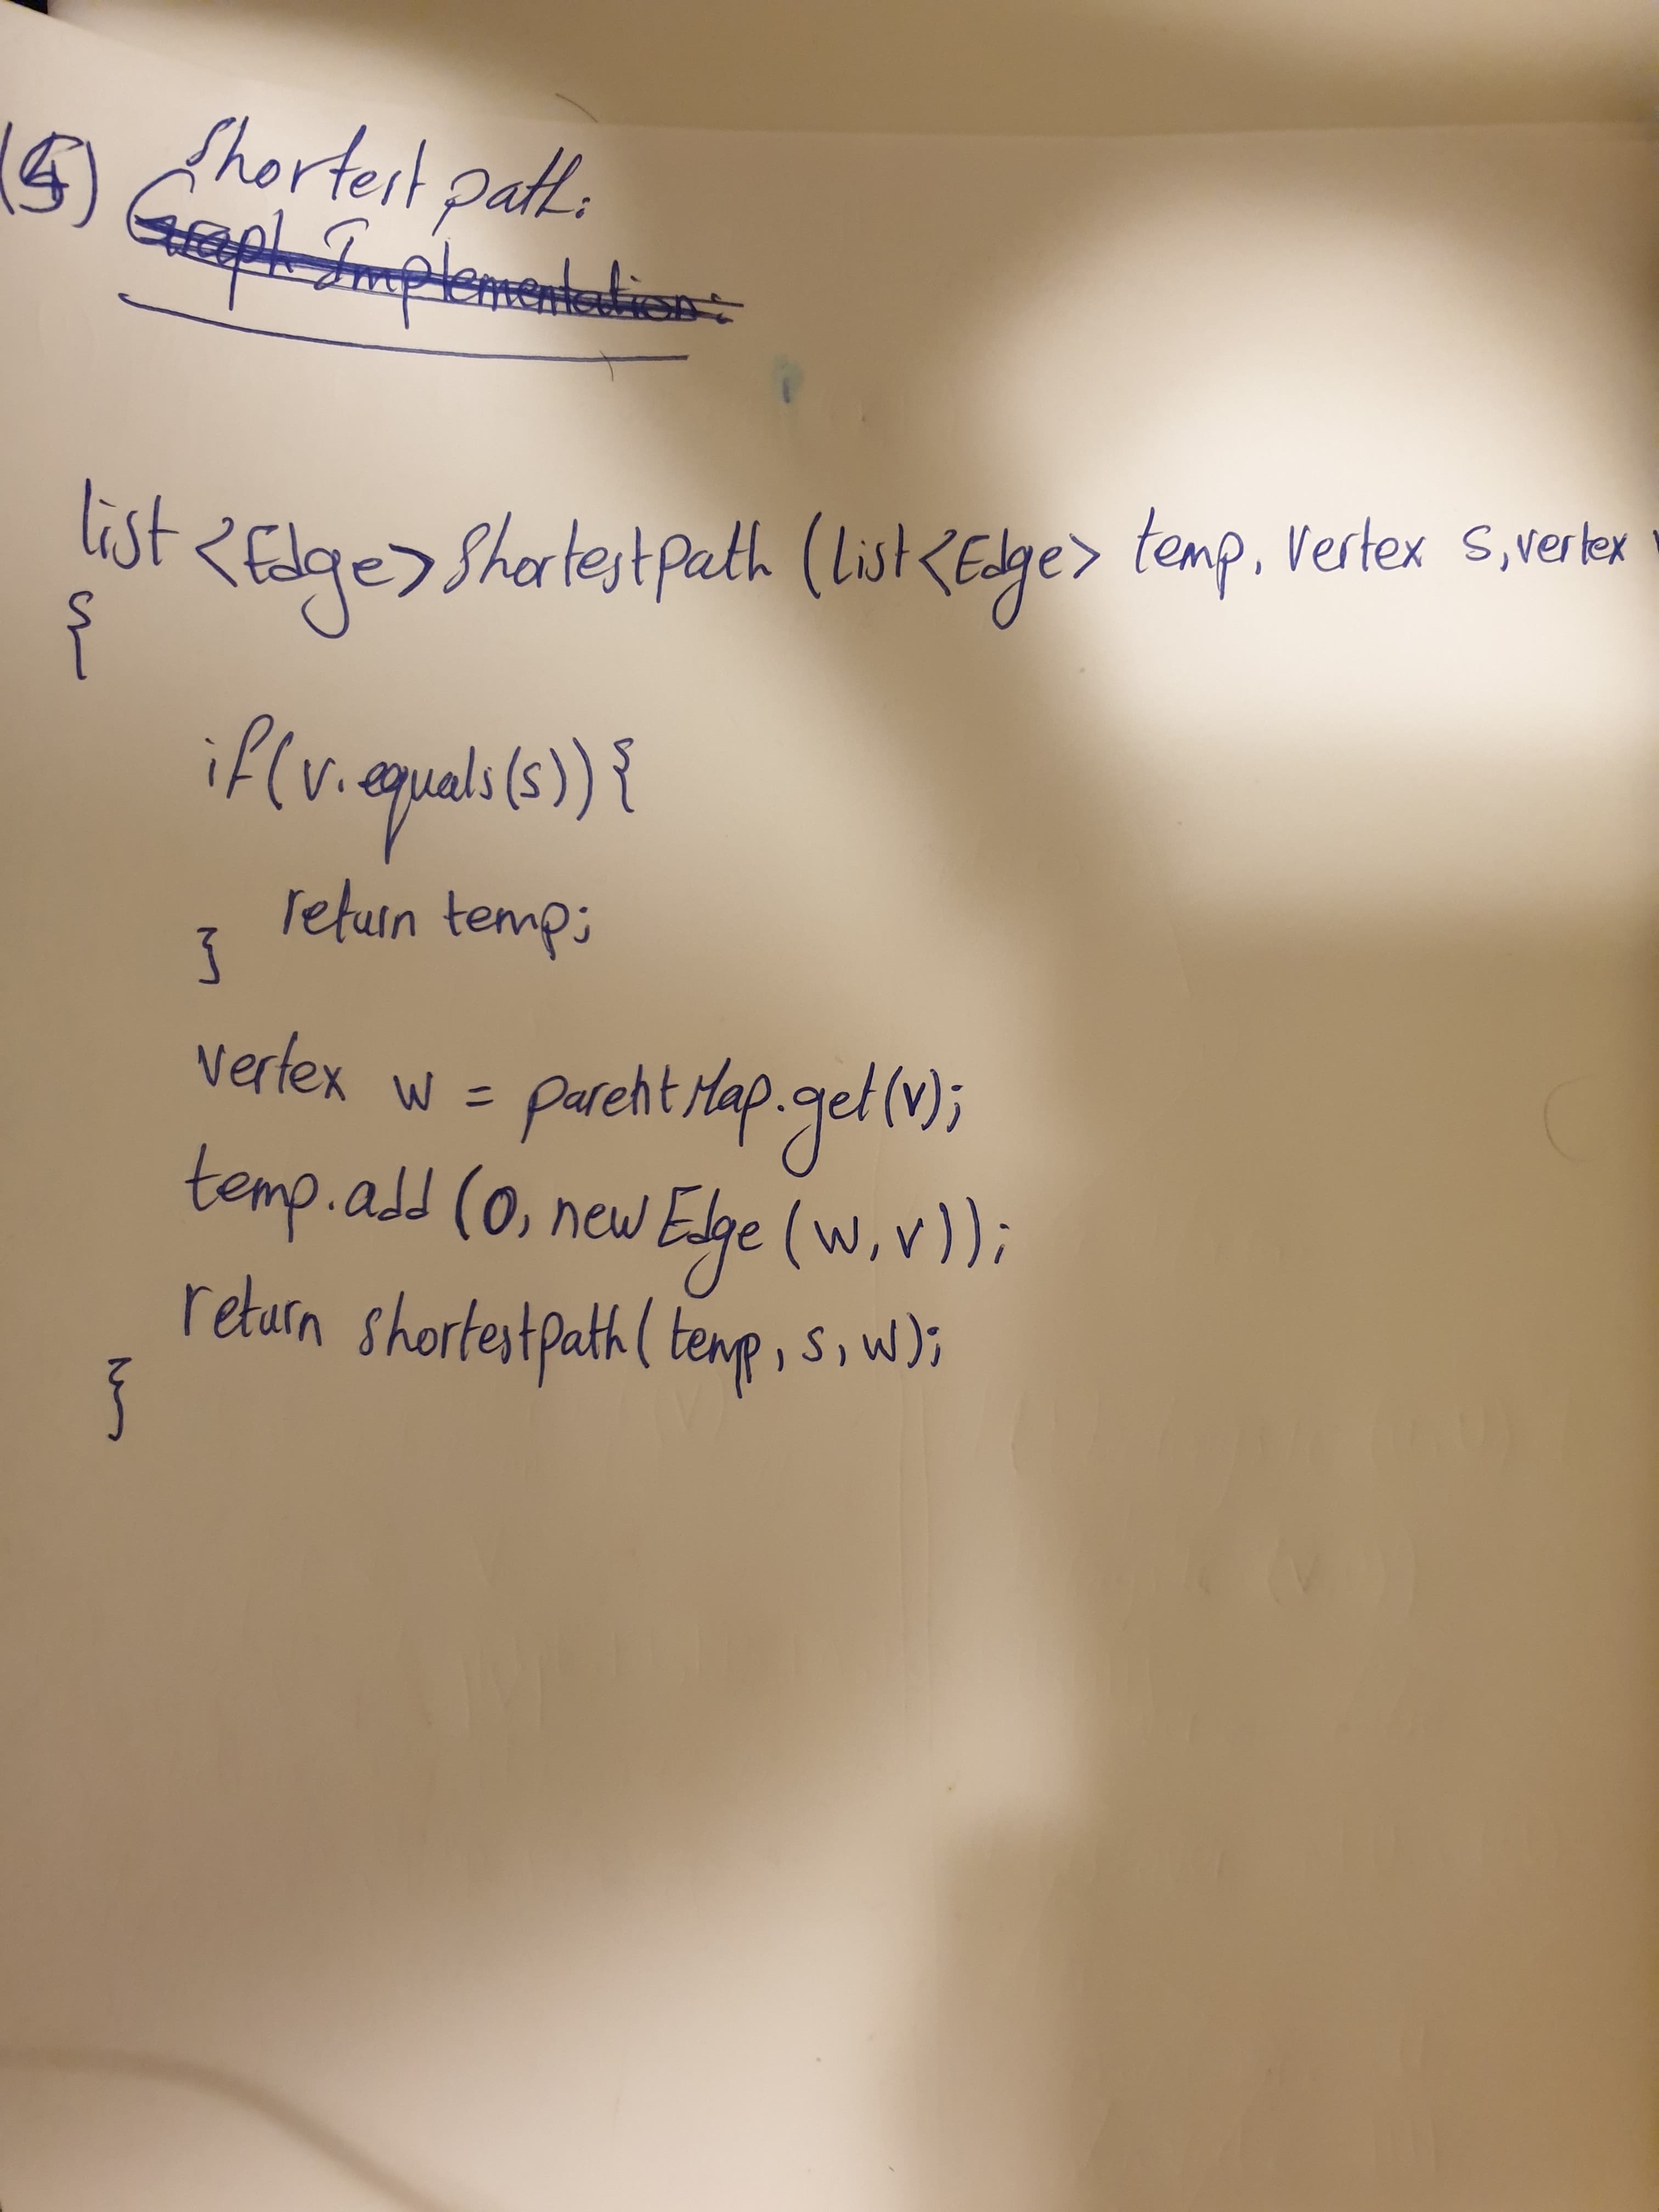 (5) Shortest path:
Graph Implementation:
list <Edge> shortestpath (list <Edge> temp, vertex s, vertex
{
if(v.equals(s)){
return temp;
}
vertex w = parentMap.get(v);
temp.add(0, new Edge (w, v));
return shortestpath( temp, s, w);
}